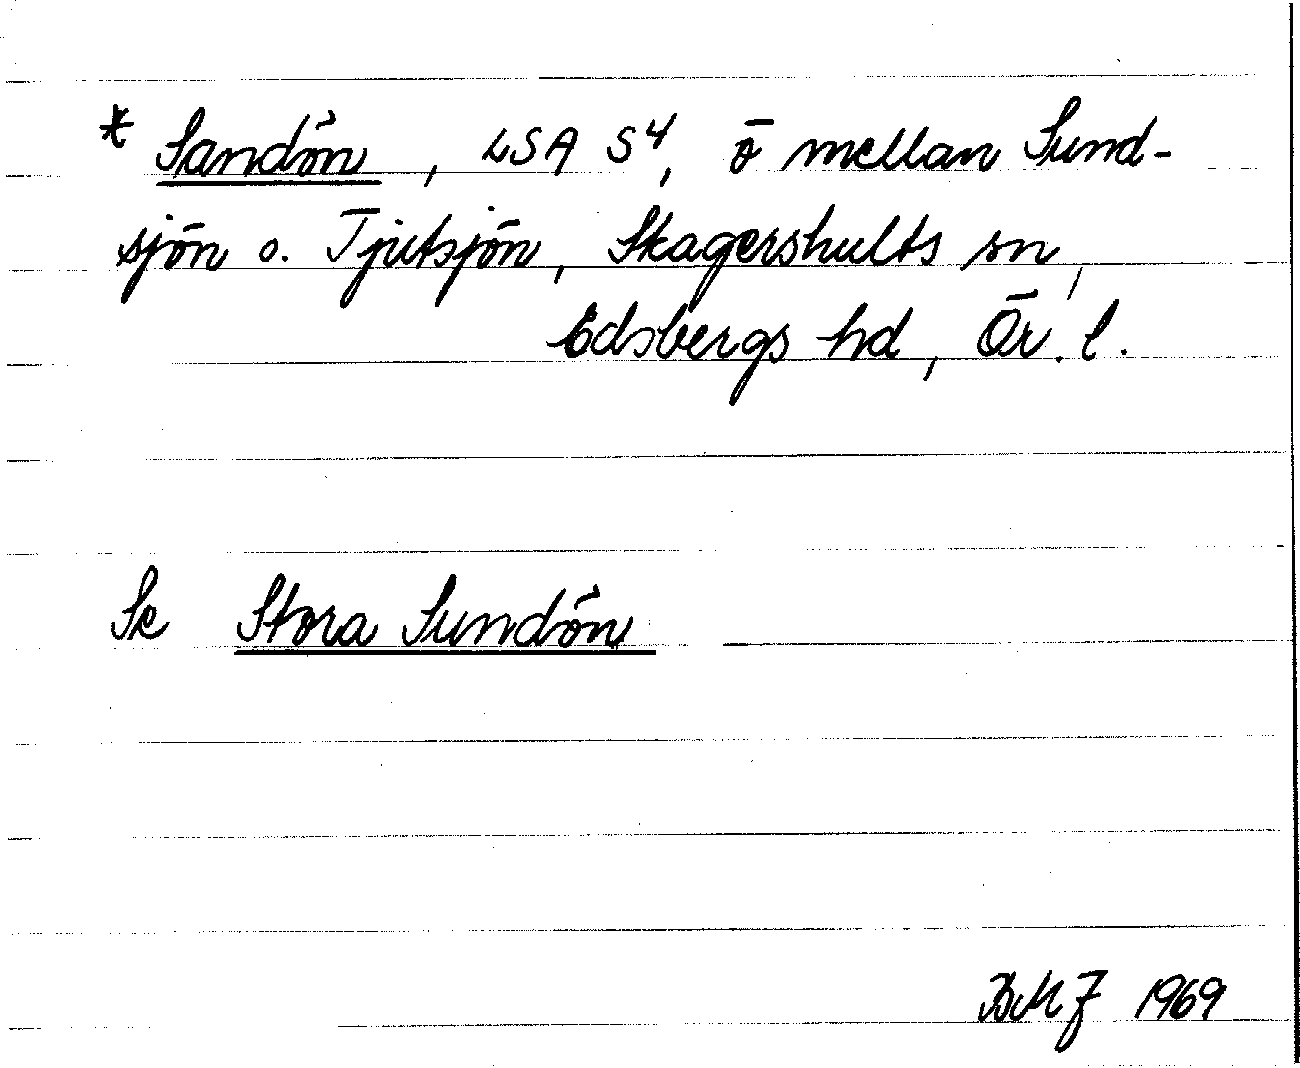 * Sandön, LSA S4, ö mellan Sund-
sjön o. Tjutsjön, Skagershults sn,
Edsbergs hd, Ör. l.
Se Stora Sundön
BMJ 1969